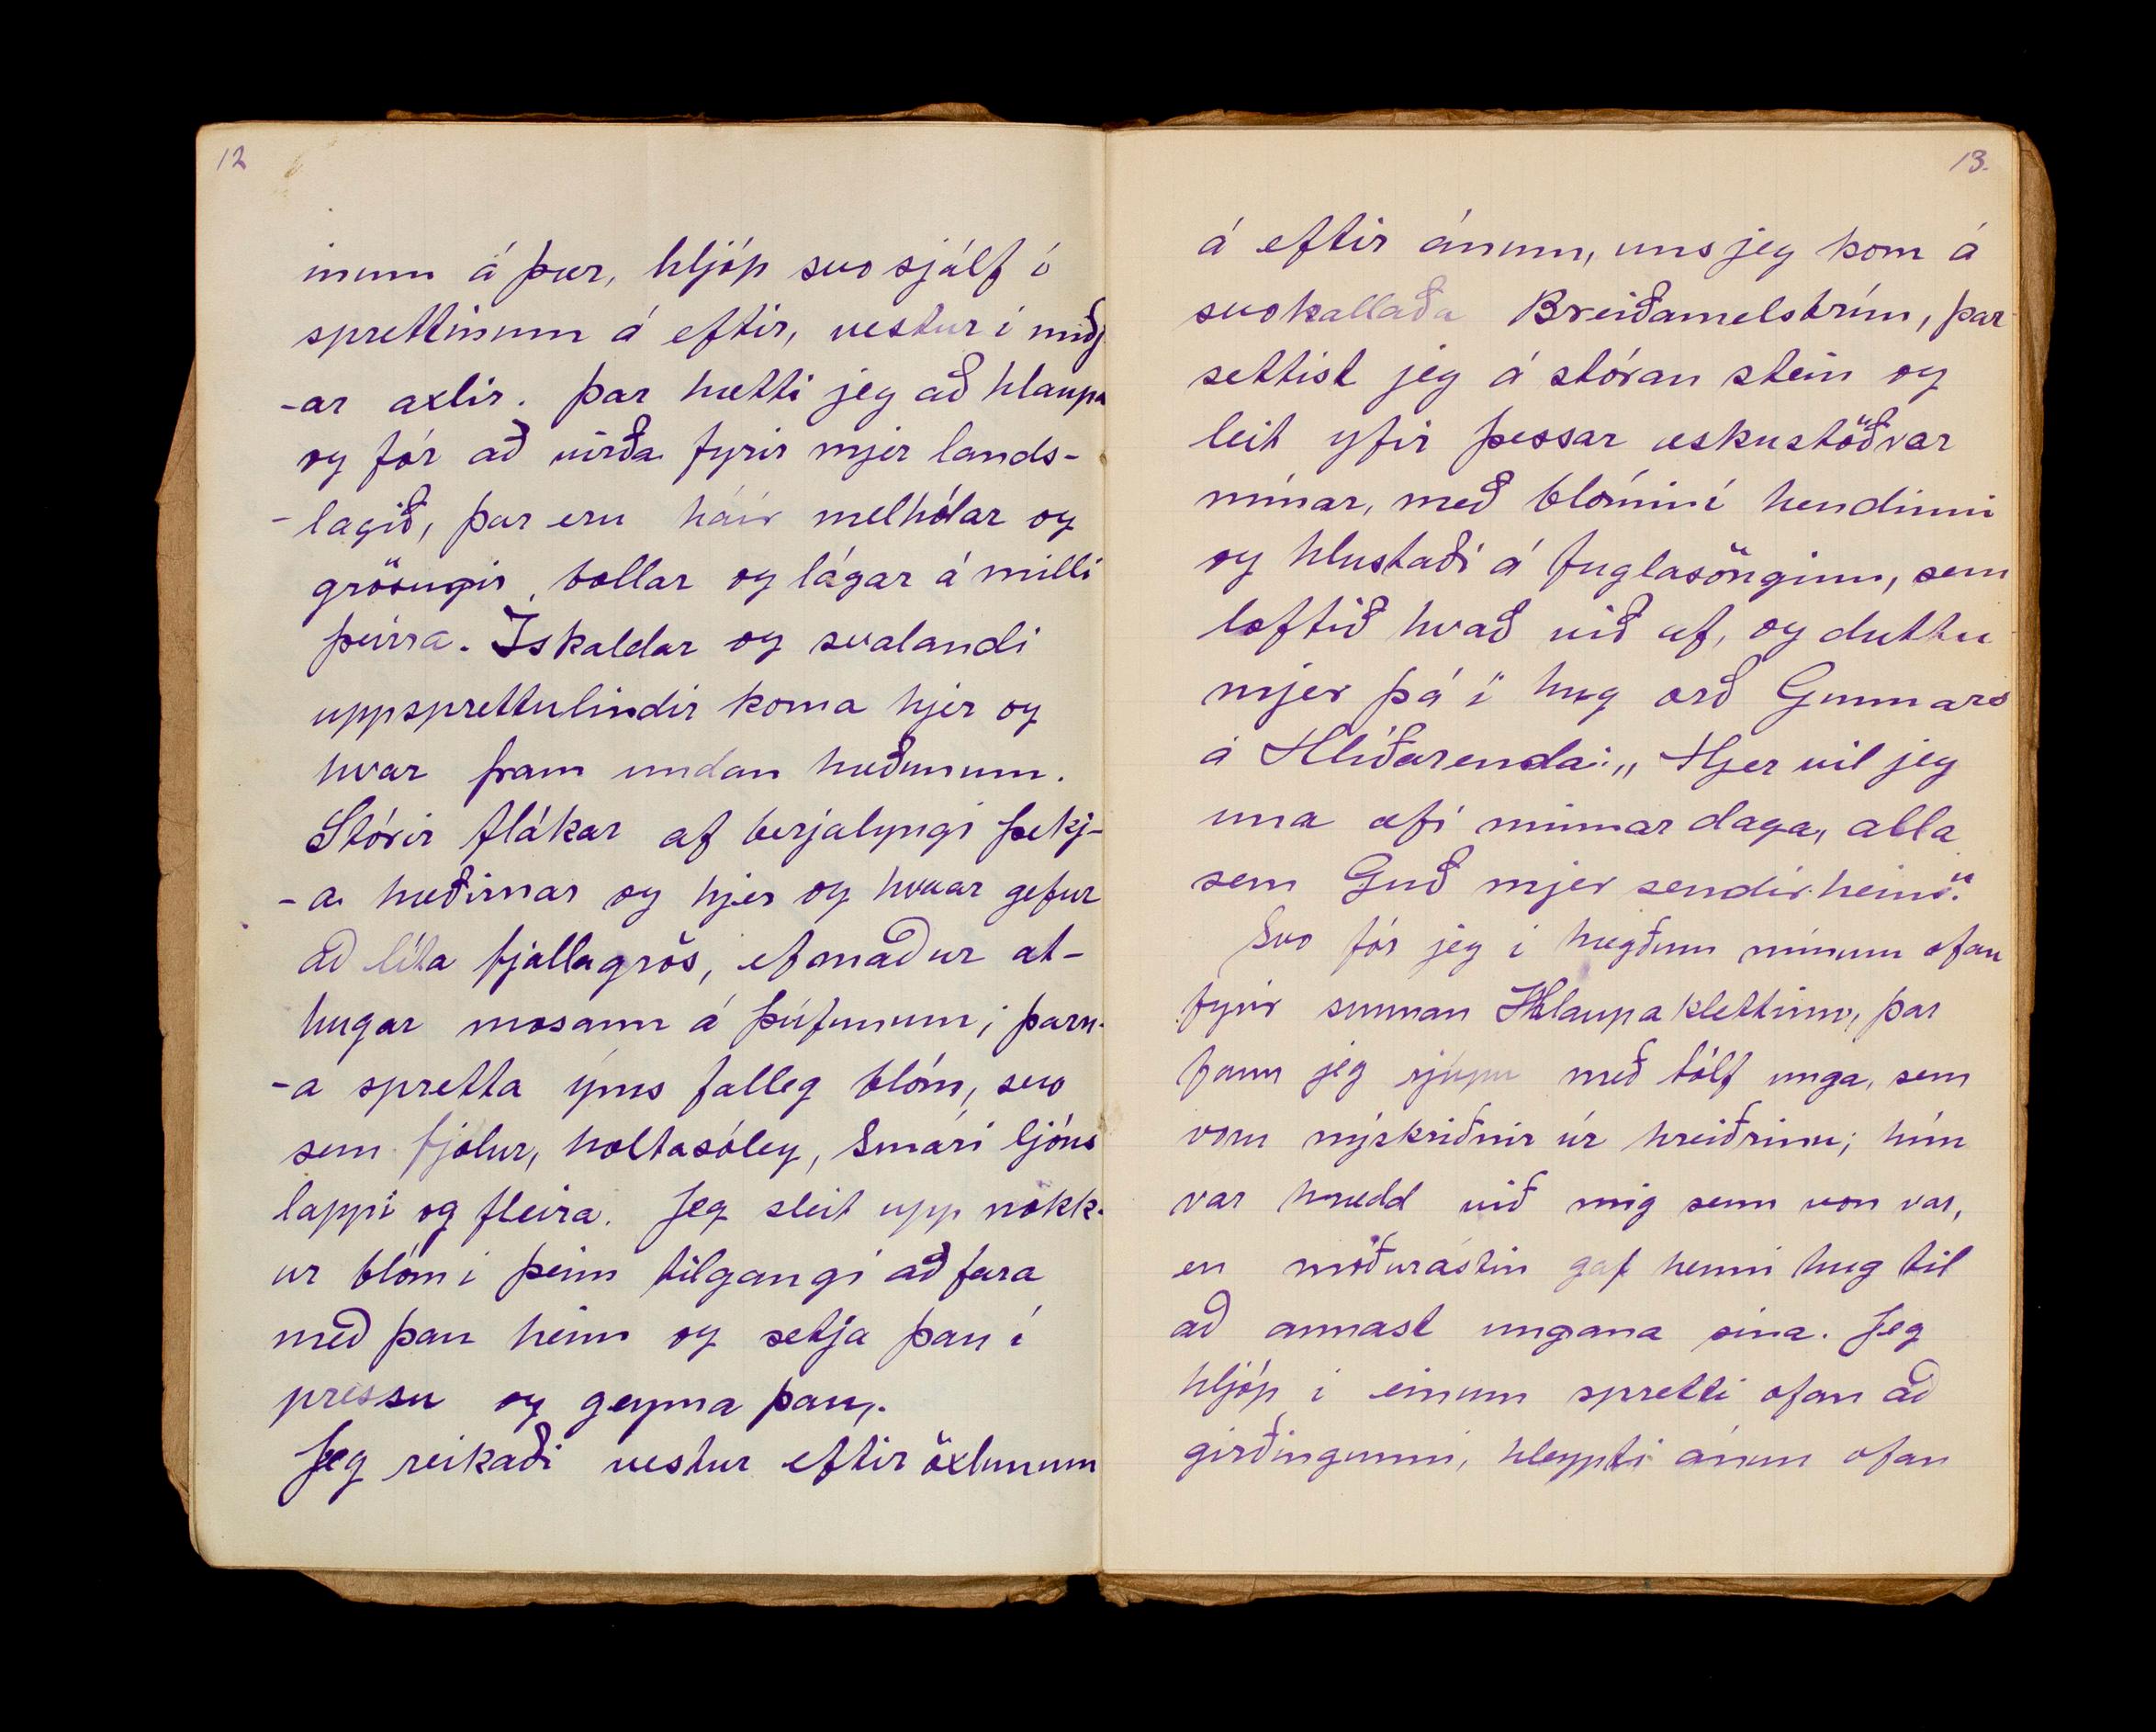 12
inum á þær, hljóp svo sjálf í
sprettinum á eftir, vestur í miðj
-ar axlir. Þar hætti jeg að hlaupa
og fór að virða fyrir mjer lands-
-lagið, þar eru háir melhólar og
grösugir bollar og lágar á milli
þeirra. Ískaldar og svalandi
uppsprettulindir koma hjer og
hvar fram undan hæðunum.
Stórir flákar af berjalyngi þekj-
-a hæðirnar og hjer og hvar gefur
að líta fjallagrös, ef maður at-
hugar mosann á þúfunum; þarn-
-a spretta ýms falleg blóm, svo
sem fjólur, holtasóley, Smári ljóns
lappi og fleira. Jeg sleit upp nokk-
ur blóm í þeim tilgangi að fara
með þau heim og setja þau í
pressu og geyma þau.
Jeg reikaði vestur eftir öxlunum
13.
á eftir ánum, uns jeg kom á
svokallaða Breiðamelsbrún, þar
settist jeg á stóran stein og
leit yfir þessar æskustöðvar
mínar, með blómin í hendinni
og hlustaði á fuglasönginn, sem
loftið hvað við af, og duttu
mjer þá í hug orð Gunnars
á Hlíðarenda: „Hjer vil jeg
una æfi minnar daga, alla
sem Guð mjer sendir heim".
Svo fór jeg í hægðum mínum ofan
fyrir sunnan Hlaupaklettinn, þar
fann jeg rjúpu með tólf unga, sem
voru nýskriðnir úr hreiðrinu; hún
var hrædd við mig sem von var,
en móðurástin gaf henni hug til
að annast ungana sína. Jeg
hljóp í einum spretti ofan að
girðingunni, hleypti ánum ofan